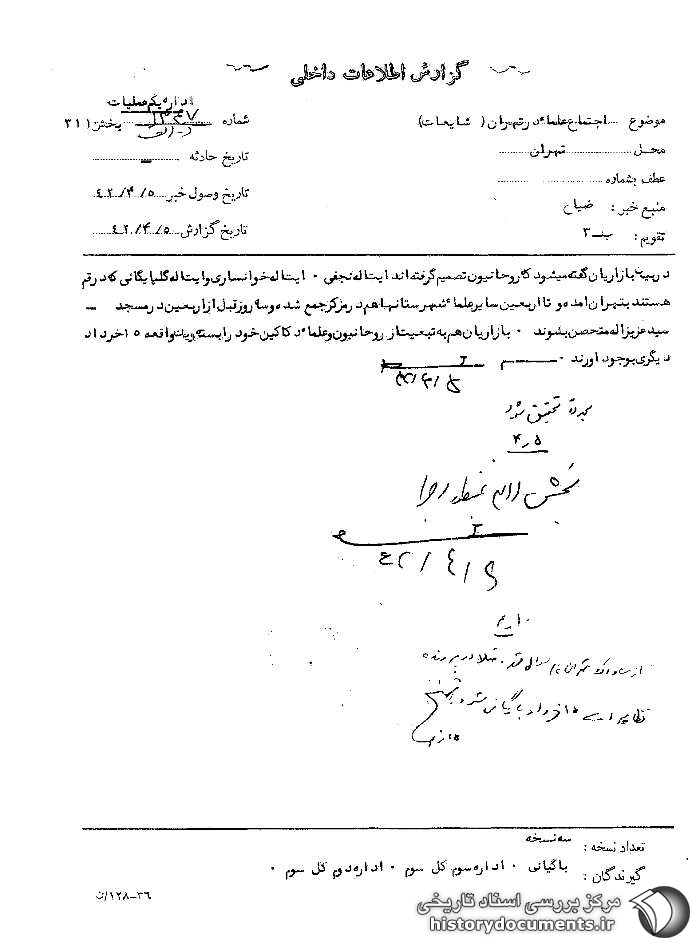 گزارش اطلاعات داخلی
اداره یکم عملیات
موضوع اجتماع علماء در تهران ( شایعات )
شماره بخش ۳۱۱
محل تهران
تاریخ حادثه ــ
عطف بشماره
تاریخ وصول خبر ۴۲/۴/۵
منبع خبر : ضیاء
تاریخ گزارش ۴۲/۴/۵
تقویم : ب-۳
در بین بازاریان گفته میشود که روحانیون تصمیم گرفته اند ایت اله نجفی ۰ ایت اله خوانساری وایت اله گلپایگانی که در قم
هستند بتهران امده و تا اربعین سایر علماء شهرستانها هم در مرکز جمع شده و سه روز قبل از اربعین در مسجد
سید عزیزاله متحصن بشوند ۰ بازاریان هم به تبعیت از روحانیون و علماء دکاکین خود را بسته و یک واقعه ۱۵ خرداد
دیگری بوجود اورند ۰ م
مجددا تحقیق شود
۴٫۵
بخش
۴۲/۴/۶
از ساواک تهران
تظاهرات ۱۵ خرداد بایگانی شود
تعداد نسخه : سه نسخه
گیرندگان : باگیانی ۰ اداره سوم کل سوم ۰ اداره دوم کل سوم ۰
۳۶-۱۲۸/ت
مرکز بررسی اسناد تاریخی
historydocuments.ir